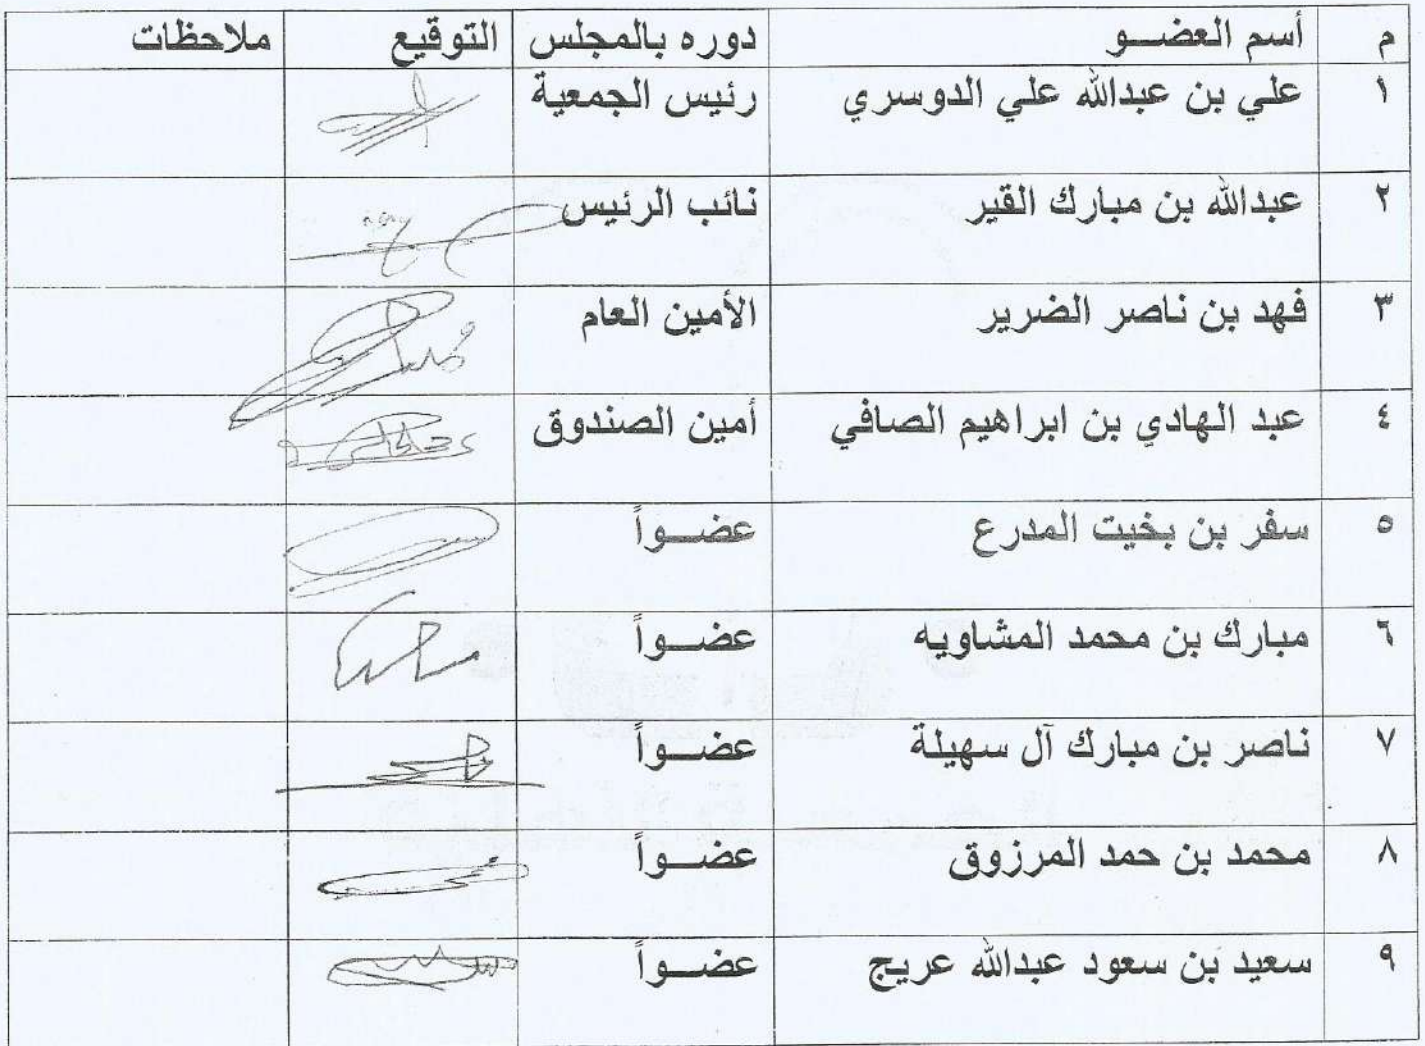 م أسم العضـــو دوره بالمجلس التوقيع ملاحظات
١ علي بن عبدالله علي الدوسري رئيس الجمعية
٢ عبدالله بن مبارك القير نائب الرئيس
٣ فهد بن ناصر الضرير الأمين العام
٤ عبد الهادي بن ابراهيم الصافي أمين الصندوق
٥ سفر بن بخيت المدرع عضـــواً
٦ مبارك بن محمد المشاويه عضـــواً
٧ ناصر بن مبارك آل سهيلة عضـــواً
٨ محمد بن حمد المرزوق عضـــواً
٩ سعيد بن سعود عبدالله عريج عضـــواً